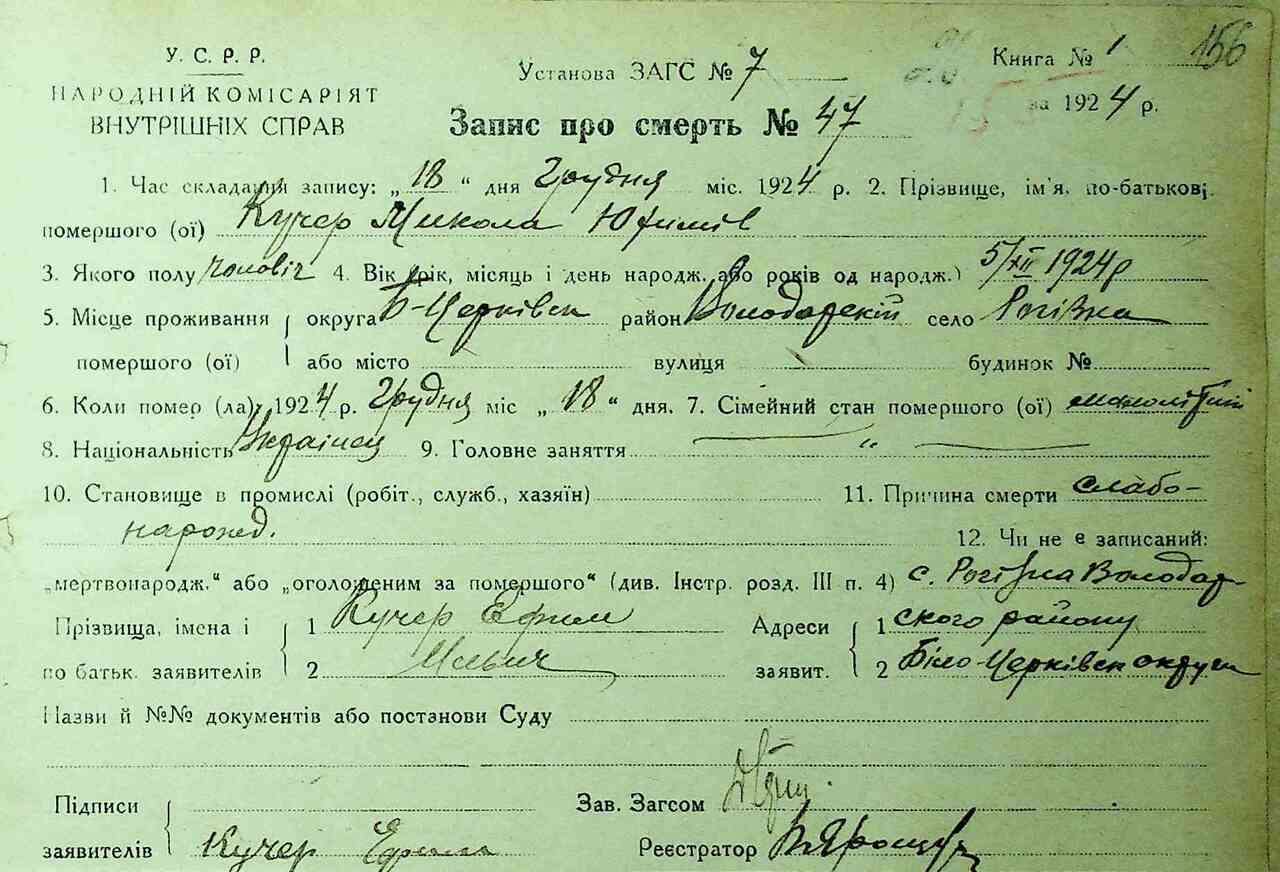 У. С. Р. Р.
НАРОДНІЙ КОМІСАРІЯТ
ВНУТРІШНІХ СПРАВ
Установа ЗАГС № 7
Книга № 1
156
за 1924 р.
Запис про смерть № 47
1. Час складання запису: „18“ дня Грудня міс. 1924 р. 2. Прізвище, ім'я, по-батькові
помершого (ої) Кучер Микола Юхимів
3. Якого полу чоловіч 4. Вік (рік, місяць і день народж. або років од народж.) 5/XII 1924 р
5. Місце проживання округа Б-Церківск район Володарскій село Рогізна
помершого (ої) або місто вулиця будинок №
6. Коли помер (ла): 1924 р. Грудня міс „18“ дня. 7. Сімейний стан помершого (ої)
8. Національність Украінец 9. Головне заняття „
10. Становище в промислі (робіт., служб., хазяїн) 11. Причина смерти слабо-
нарожд. 12. Чи не є записаний:
„мертвонародж.“ або „оголошеним за помершого“ (див. Інстр. розд. III п. 4) с. Рогізна Володар-
Прізвища, імена і 1 Кучер Ефим Адреси 1 ского району
по батьк. заявителів 2 Ильич заявит. 2 Біло-Церківск округи
Назви й №№ документів або постанови Суду
Підписи Зав. Загсом
заявителів Кучер Ефим Реєстратор